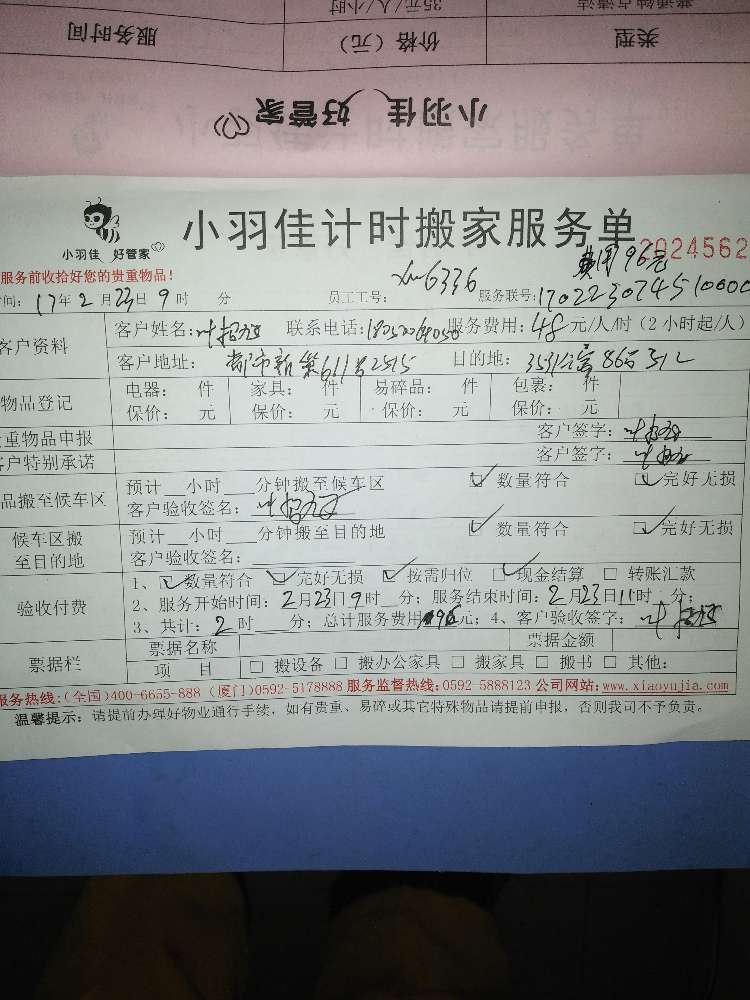 普通钟点清洁
35元/人/小时
类型
价格（元）
服务时间
小羽佳 好管家
小羽佳 好管家
小羽佳计时搬家服务单
2024562
服务前收拾好您的贵重物品！
费用96元
间：17年2月23日9时 分 员工工号：xm6336 服务联号：
客户资料
客户姓名： 联系电话： 服务费用：48元/人/时（2小时起/人）
客户地址： 目的地：
物品登记
电器： 件 家具： 件 易碎品： 件 包裹： 件
保价： 元 保价： 元 保价： 元 保价： 元
重物品申报 客户签字：
户特别承诺 客户签字：
品搬至候车区
预计__小时___分钟搬至候车区 ☑数量符合 ☑完好无损
客户验收签名：
候车区搬至目的地
预计__小时___分钟搬至目的地 ☑数量符合 ☑完好无损
客户验收签名：
验收付费
1、☑数量符合 ☑完好无损 ☑按需归位 ☑现金结算 □转账汇款
2、服务开始时间：2月23日9时__分；服务结束时间：2月23日11时__分；
3、共计：2时___分；总计服务费用96元；4、客户验收签字：
票据栏
票据名称 票据金额
项 目 □搬设备 □搬办公家具 □搬家具 □搬书 □其他：
服务热线:(全国)400-6655-888 (厦门)0592-5178888 服务监督热线:0592-5888123 公司网站:www.xiaoyujia.com
温馨提示：请提前办理好物业通行手续，如有贵重、易碎或其它特殊物品请提前申报，否则我司不予负责。